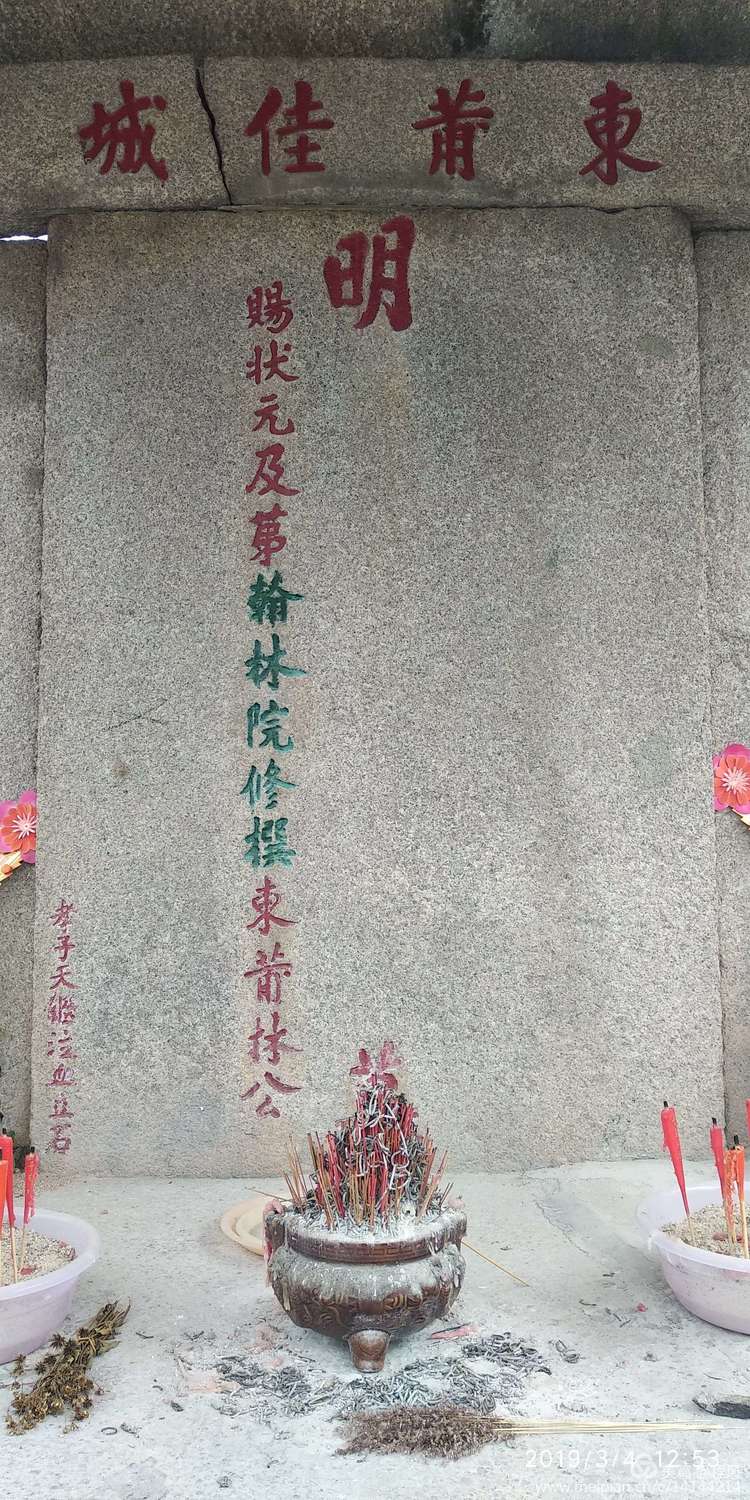 東莆佳城
明
賜状元及苐翰林院修撰東莆林公
墓
孝子天鑑泣血立石
2019/3/4 12:53